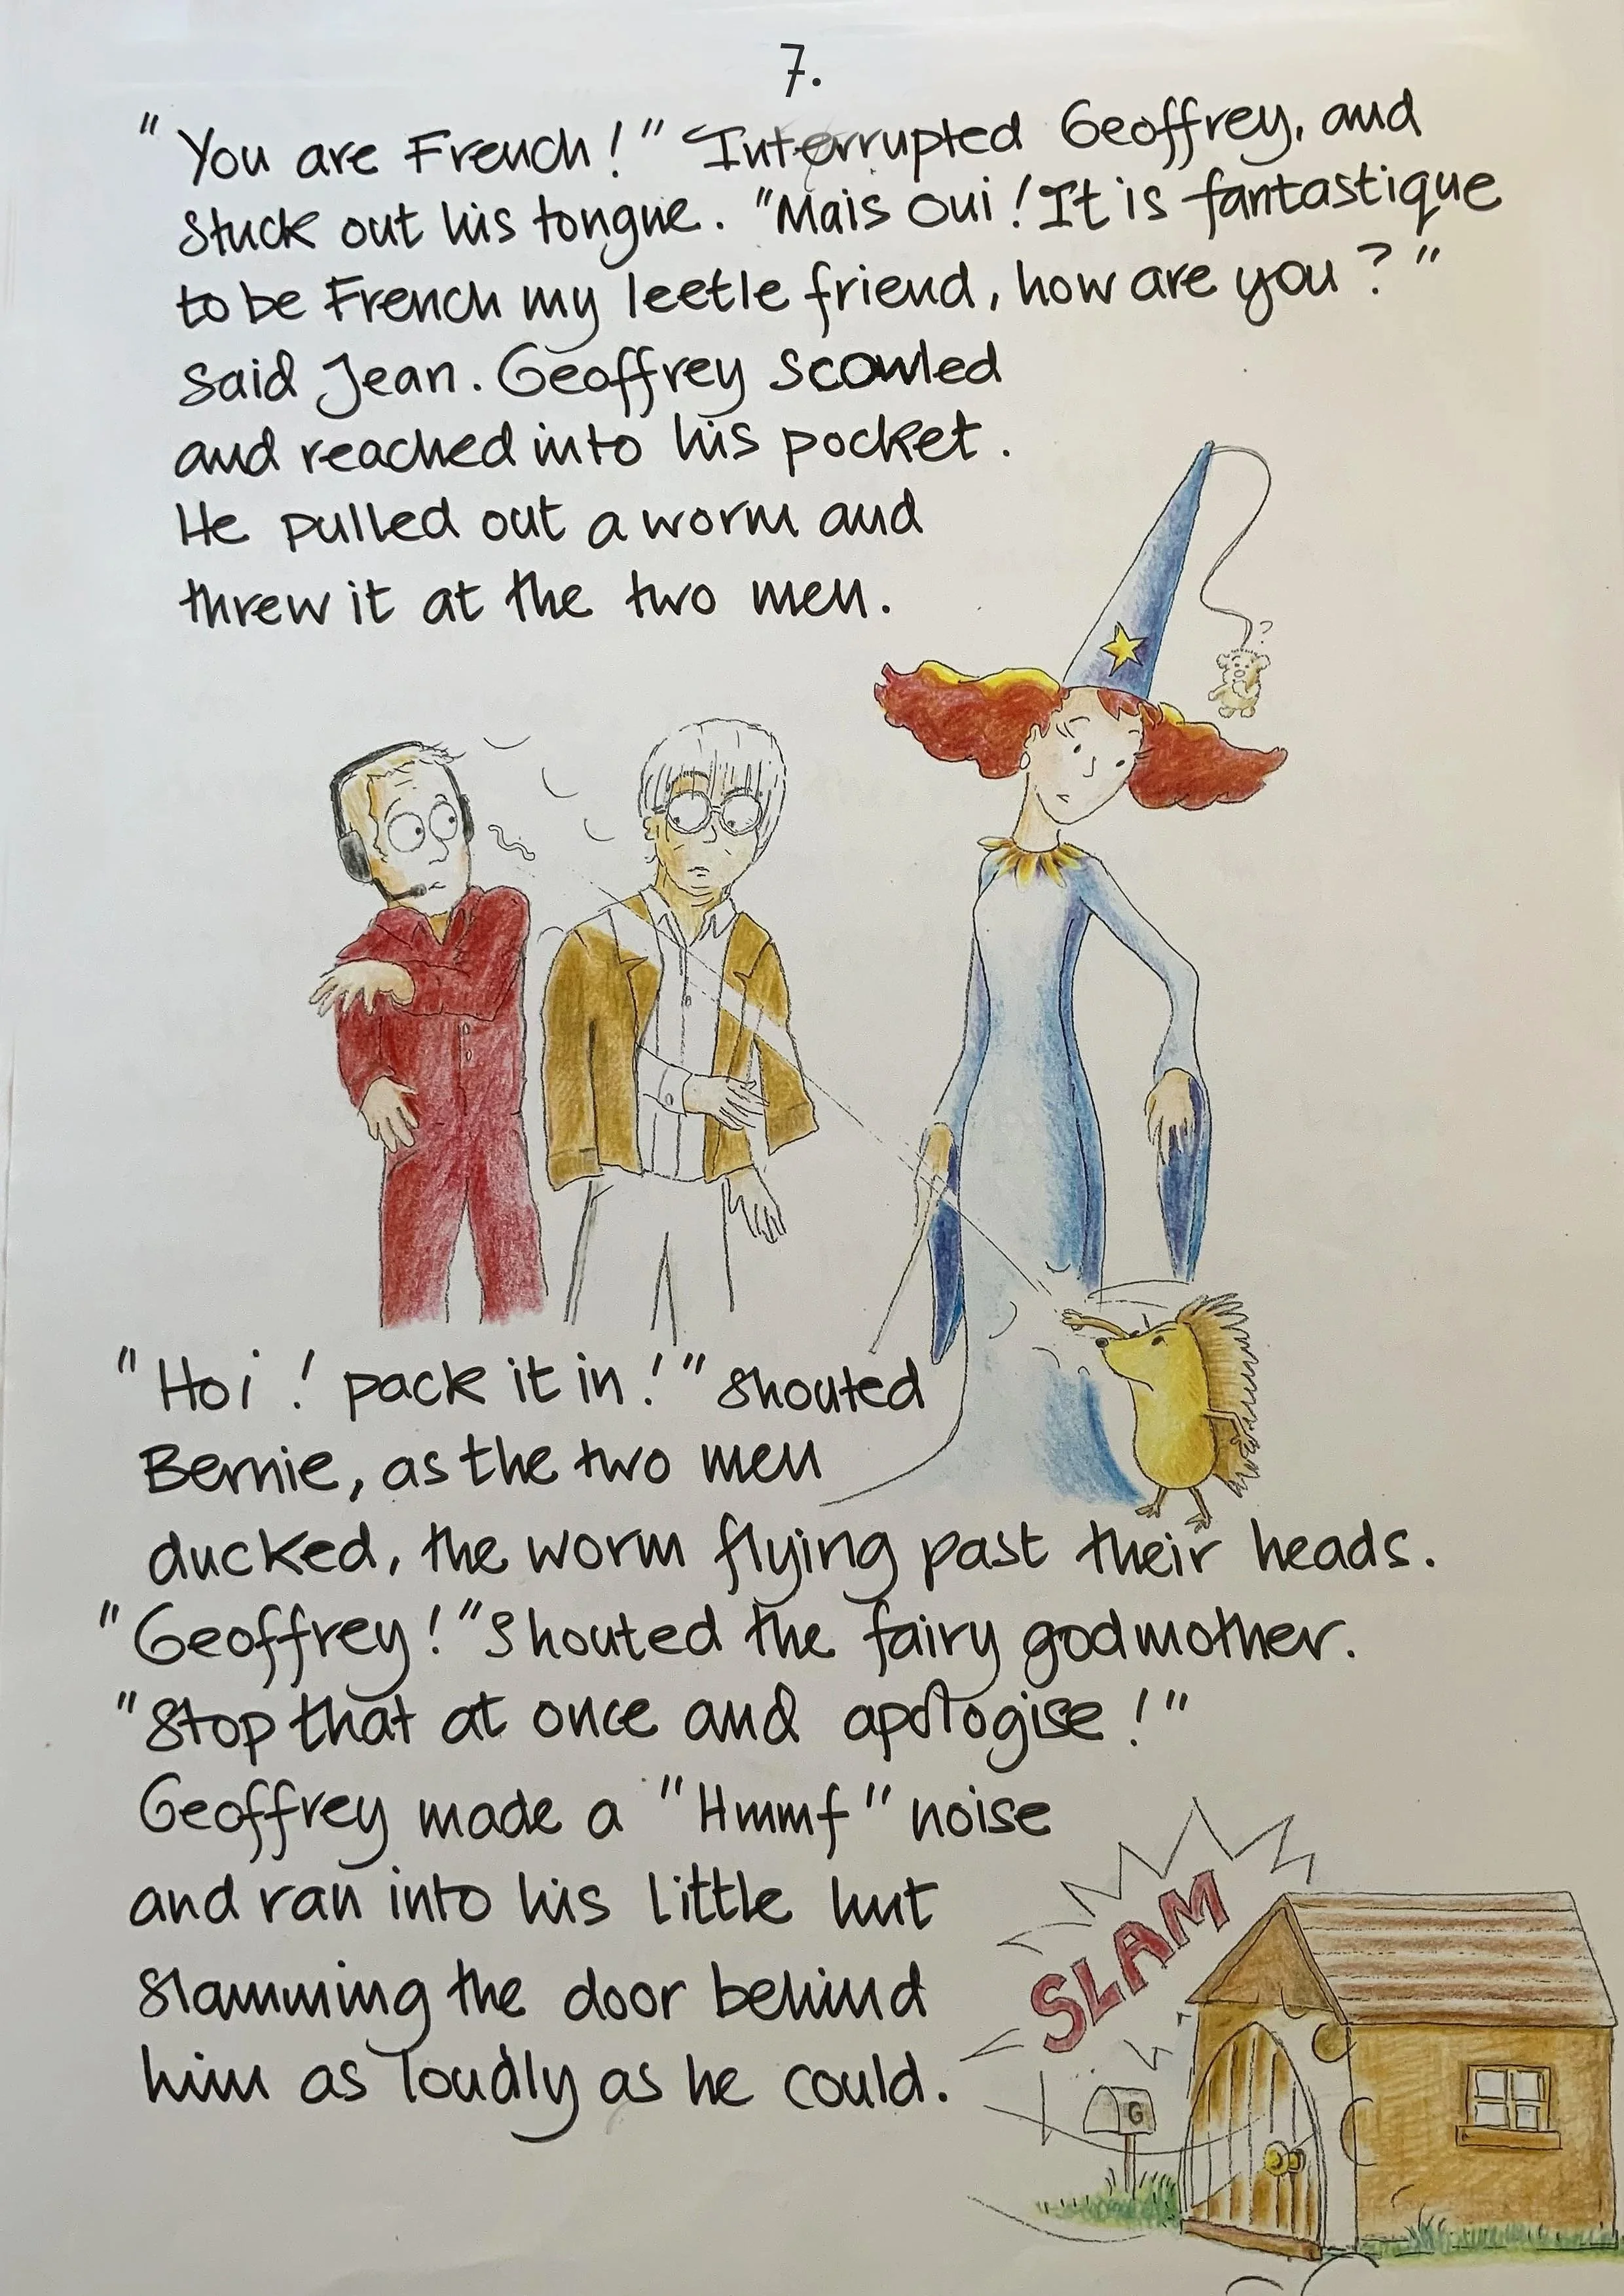 7.
"You are French!" Interrupted Geoffrey, and
stuck out his tongue. "Mais oui! It is fantastique
to be French my leetle friend, how are you?"
Said Jean. Geoffrey scowled
and reached into his pocket.
He pulled out a worm and
threw it at the two men.
?
"Hoi! pack it in!" shouted
Bernie, as the two men
ducked, the worm flying past their heads.
"Geoffrey!" Shouted the fairy godmother.
"Stop that at once and apologise!"
Geoffrey made a "Hmmf" noise
and ran into his little hut
slamming the door behind
him as loudly as he could.
SLAM
G